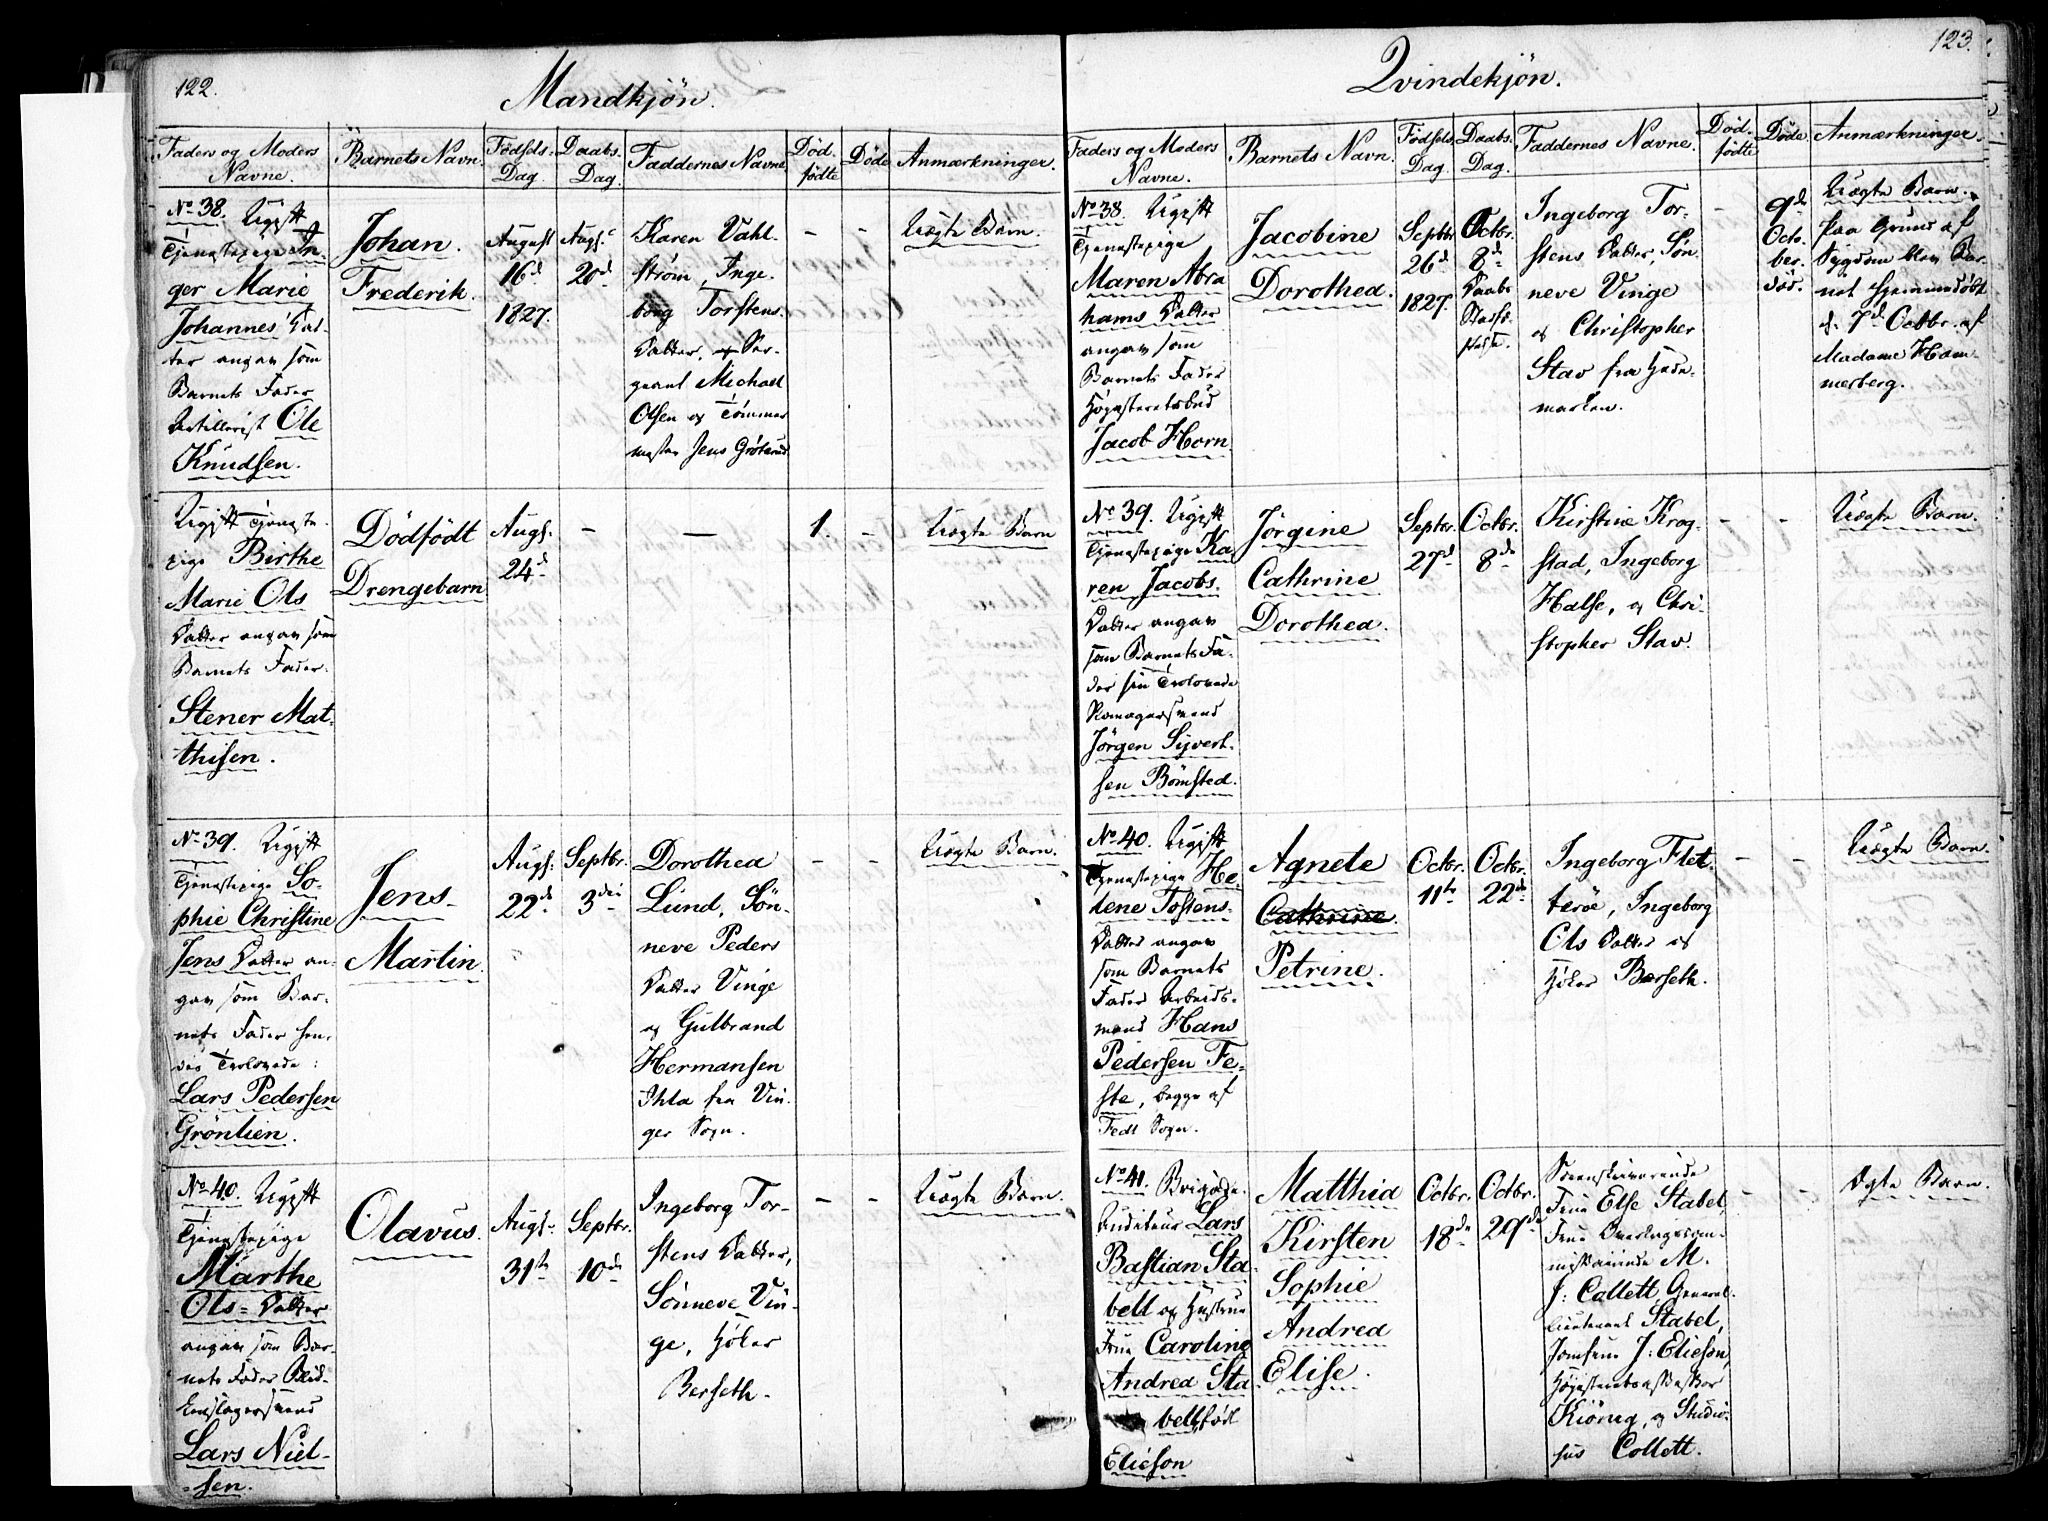 122.
Mandkjön.
Faders og Moders
Navne.
Barnets Navn.
Födsels
Dag.
Daabs.
Dag.
Faddernes Navne
Död-
födte
Døde
Anmærkninger.
No 38. Ugift
Tjenestepige In-
ger Marie
Johannes Dat-
ter angav som
Barnets Fader
Artillerist Ole
Knudsen.
Johan
Frederik.
August
16d
1827.
Augs.
20d
Karen Vahl-
strøm, Inge-
borg Torstens-
Datter, Ser-
geant Michael
Olsen og Tömmer
mester Jens Grötrud
- -
Uægte Barn.
Ugift Tjeneste-
pige Birthe
Marie Ols
Datter angav som
Barnets Fader.
Stener Mat-
thisen.
Dödfödt
Drengebarn
Augs.
24d
-
-
1. -
Uægte Barn
No 39. Ugift
Tjenestepige So-
phie Christine
Jens Datter an-
gav som Bar-
nets Fader hen-
des Trolovede:
Lars Pedersen
Grönlien.
Jens
Martin.
Augs.
22d
Septbr.
3die
Dorothea
Lund, Sön-
neve Peders
Datter Vinge
og Gulbrand
Hermansen
Ihla fra Vin-
ger Sogn.
- -
Uægte Barn.
No 40. Ugift
Tjenestepige
Marthe
Ols-Datter
angav som Bar-
nets Fader Blik-
kenslagersvend
Lars Niel-
sen.
Olavus.
Augs.
31te
Septbr.
10de
Ingeborg Tor-
stens Datter,
Sönneve Vin-
ge, Höker
Berseth.
- -
Uægte Barn.
123.
Qvindekjön.
Faders og Moders
Navne.
Barnets Navn.
Födsels
Dag
Daabs.
Dag.
Faddernes Navne.
Död-
födte
Döde
Anmærkninger.
No 38. Ugift
Tjenestepige
Maren Abra
hams Datter
angav som
Barnets Fader
Höjesteretsbud
Jacob Horn.
Jacobine
Dorothea.
Septbr
26d
1827.
Octbr.
8de
Daabs
Ingeborg Tor-
stens Datter, Søn
neve Vinge
og Christopher
Stav fra Hede-
marken.
-
9de
Octo-
ber.
död.
Uægte Barn.
paa Grund af
Sygdom blev Bar-
net hjemmedöbt
d. 7d Octbr. af
Madame Ham-
merberg.
No 39. Ugift
Tjenestepige Ka
ren Jacobs.
Datter angav
som Barnets Fa-
der sin Trolovede
Skomagersvend
Jörgen Syvert-
sen Bömsted.
Jörgine
Cathrine
Dorothea.
Septbr.
27d
Octbr.
8de
Kirstine Krog-
stad, Ingeborg
Halse, og Chri-
stopher Stav.
- -
Uægte Barn.
No 40. Ugift
Tjenestepige He-
lene Tostens-
Datter angav
som Barnets
Fader Arbeids-
mand Hans
Pedersen Fe-
ste, begge af
Fedt Sogn.
Agnete
Cathrine
Petrine.
Octbr.
11te
Octbr.
22de
Ingeborg Flet-
teröe, Ingeborg
Ols Datter og
Höker Bærseth.
- -
Uægte Barn.
No 41. Brigade-
Auditeur Lars
Bastian Sta-
bell og Hustrue
Frue Caroline
Andrea Sta
bell, född
Elieson
Matthia
Kirsten
Sophie
Andrea
Elise.
Octbr.
18de
Octbr.
29de
Frue Else Stabel,
Frue
M.
J: Collett General-
lieutenant Stabel,
Jomfrue J: Elieson,
Kiönig, og Studio-
sus Collett.
- -
Ægte Barn.